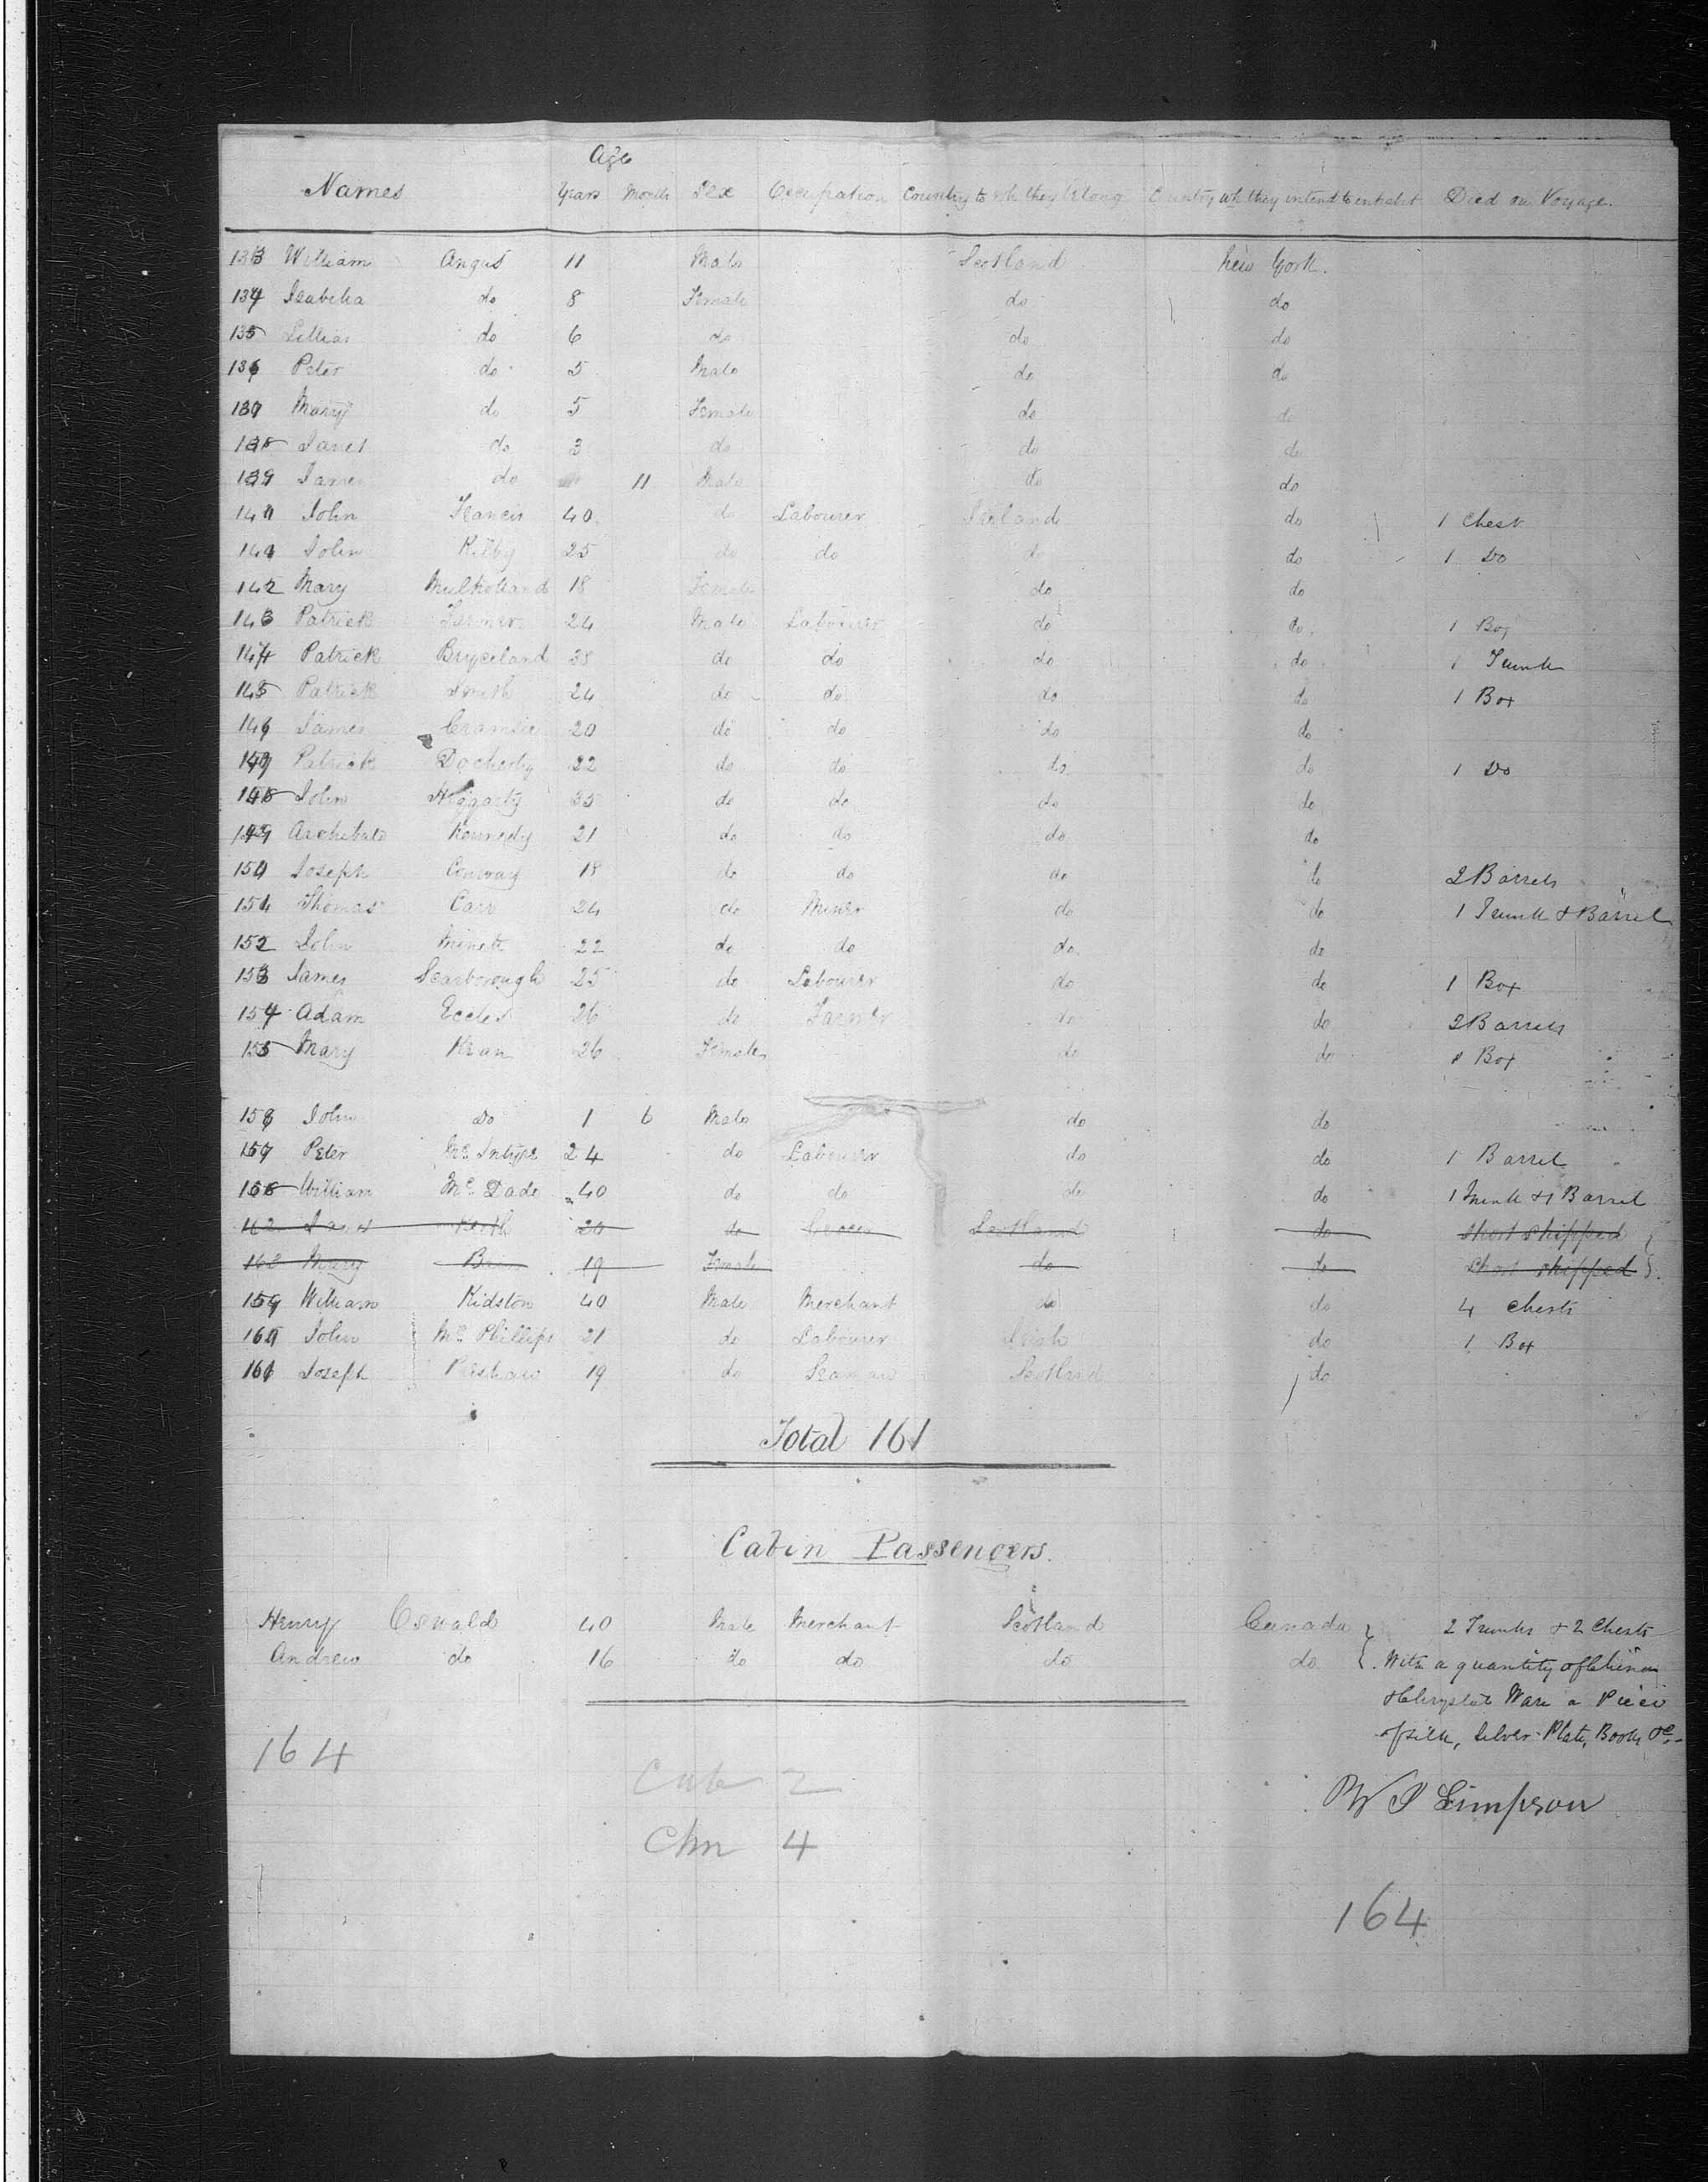 Age
Names Years Months Sex Occupation Country to wh they belong Country wh they intend to inhabit Died on Voyage.
133 William Angus 11 Male Scotland New York.
134 Isabella do 8 Female do do
135 Lillias do 6 do do do
136 Peter do 5 Male do do
137 Mary do 5 Female do do
138 Janet do 3 do do do
139 James do 11 Male do do
140 John Francis 40 do Labourer Ireland do 1 Chest
141 John Kilby 25 do do do do 1 Do
142 Mary Mulholland 18 Female do do
143 Patrick 24 Male Labourer do do 1 Box
144 Patrick Bryceland 38 do do do do 1 Trunk
145 Patrick Smith 24 do do do do 1 Box
146 James Cramsie 20 do do do do
147 Patrick Docherty 22 do do do do 1 Do
148 John Heggarty 35 do do do do
149 Archibald Kennedy 21 do do do do
150 Joseph Conway 18 do do do do 2 Barrels
151 Thomas Carr 24 do Miner do do 1 Trunk & Barrel
152 John 22 do do do do
153 James Scarborough 25 do Labourer do do 1 Box
154 Adam Eccles 26 do Farmer do do 2 Barrels
155 Mary Kean 26 Female do do 1 Box
156 John Do 1 6 Male do do
157 Peter Mc Intyre 24 do Labourer do do 1 Barrel
158 William Mc Dade 40 do do do do 1 Trunk & 1 Barrel
162 Keith 20 do Grocer Scotland do Short shipped
162 Mary 19 Female do do Short shipped
159 William Kidston 40 Male Merchant do do 4 Chests
160 John Mc Phillips 21 do Labourer Irish do 1 Box
161 Joseph 19 do Seaman Scotland do
Total 161
Cabin Passengers.
Henry Oswald 40 Male Merchant Scotland Canada 2 Trunks & 2 Chests
Andrew do 16 do do do do With a quantity of China
& Chrystal Ware a Piece
of silk, Silver Plate, Books &c
164
2
Chn 4
Simpson
164